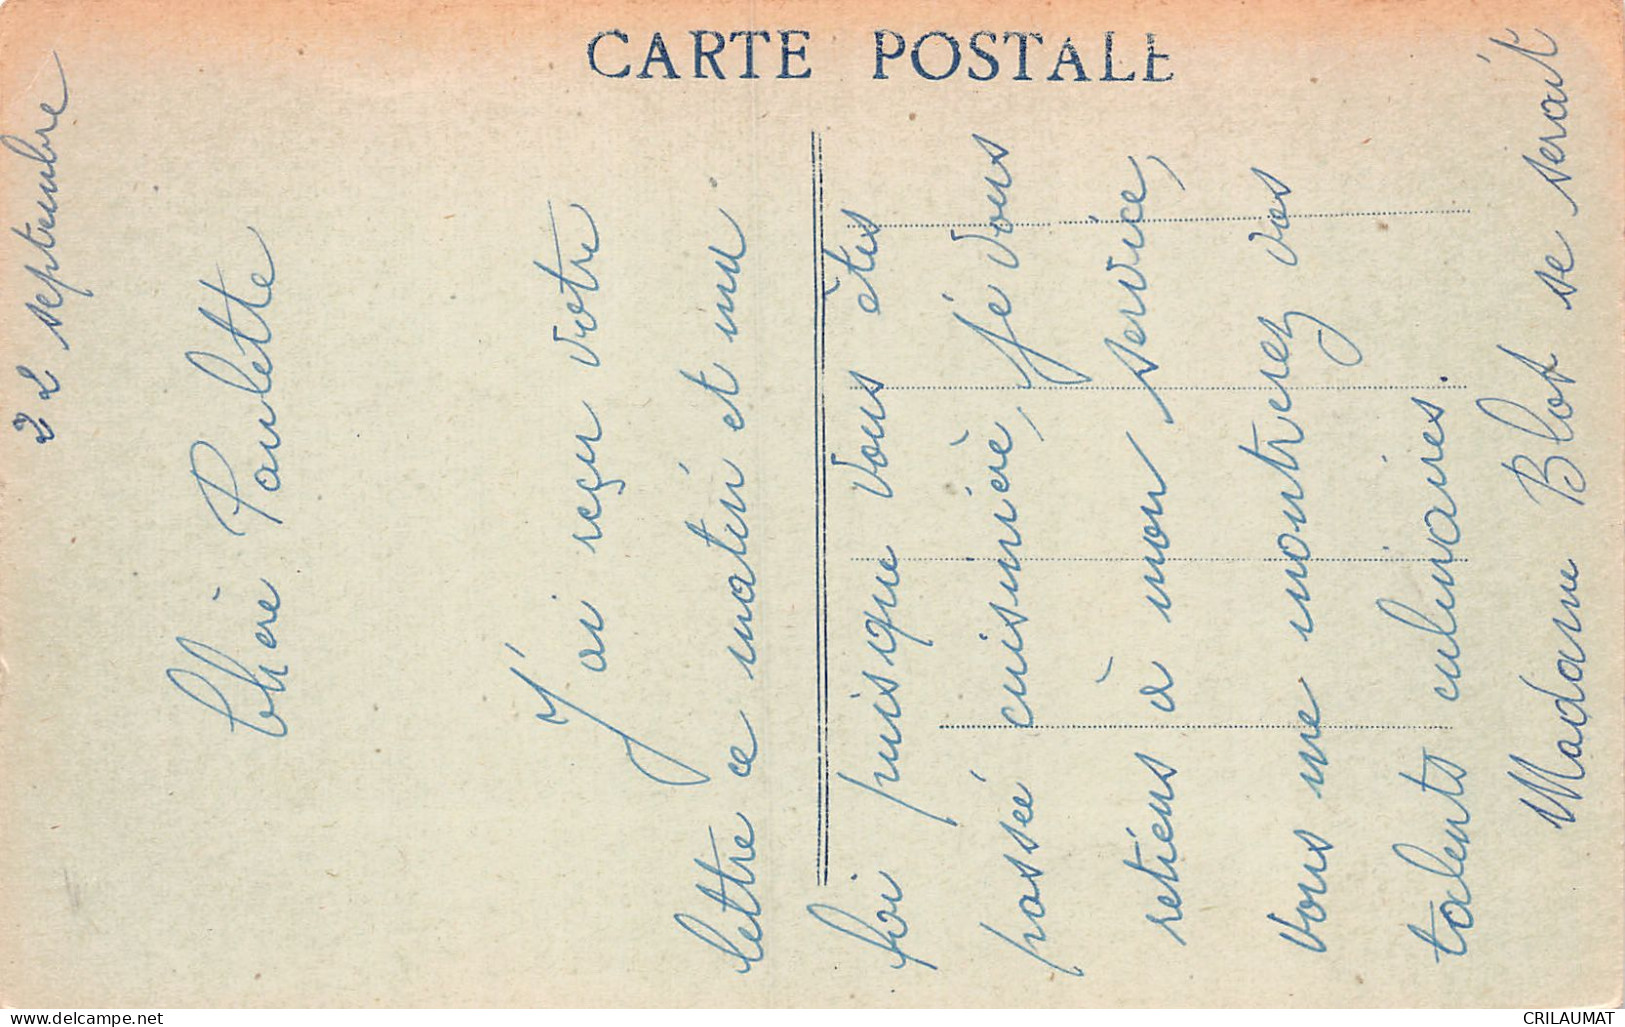 CARTE POSTALE
22 septembre
Chère Paulette
J'ai reçu votre
lettre ce matin et ma
foi puisque vous êtes
passée cuisinière, je vous
retiens à mon service,
vous me montrerez vos
talents culinaires.
Madame Blot se serait
www.delcampe.net
CRILAUMAT